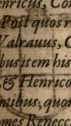 enricus, Con
Poſt quos r
Valrauus, C
bus item his
& Henrico
ntibus, quor
omes Renecc